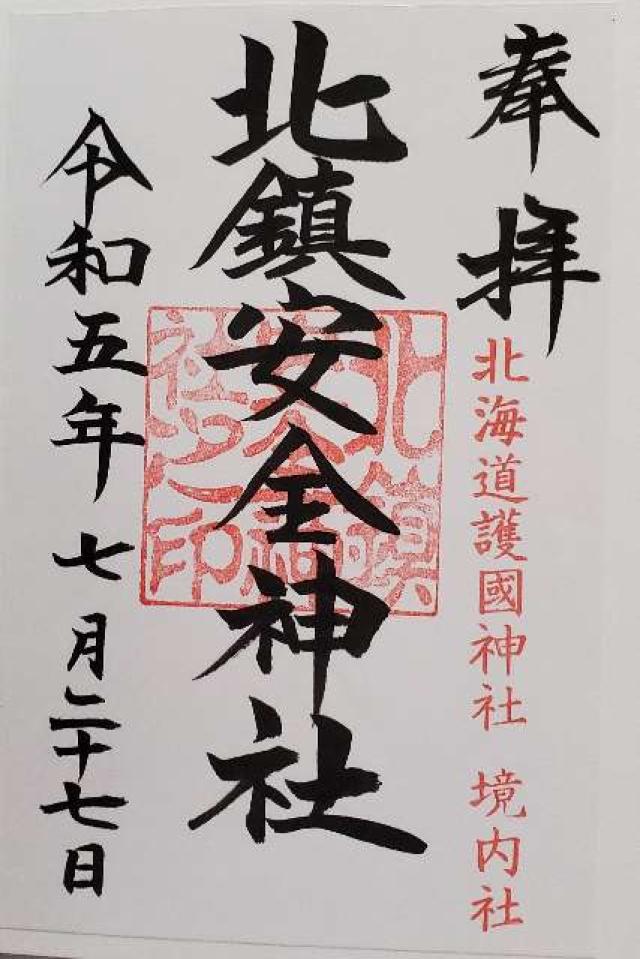 奉拝
北海道護國神社 境内社
北鎮安全神社
北鎮
安全神
社之印
令和五年七月二十七日